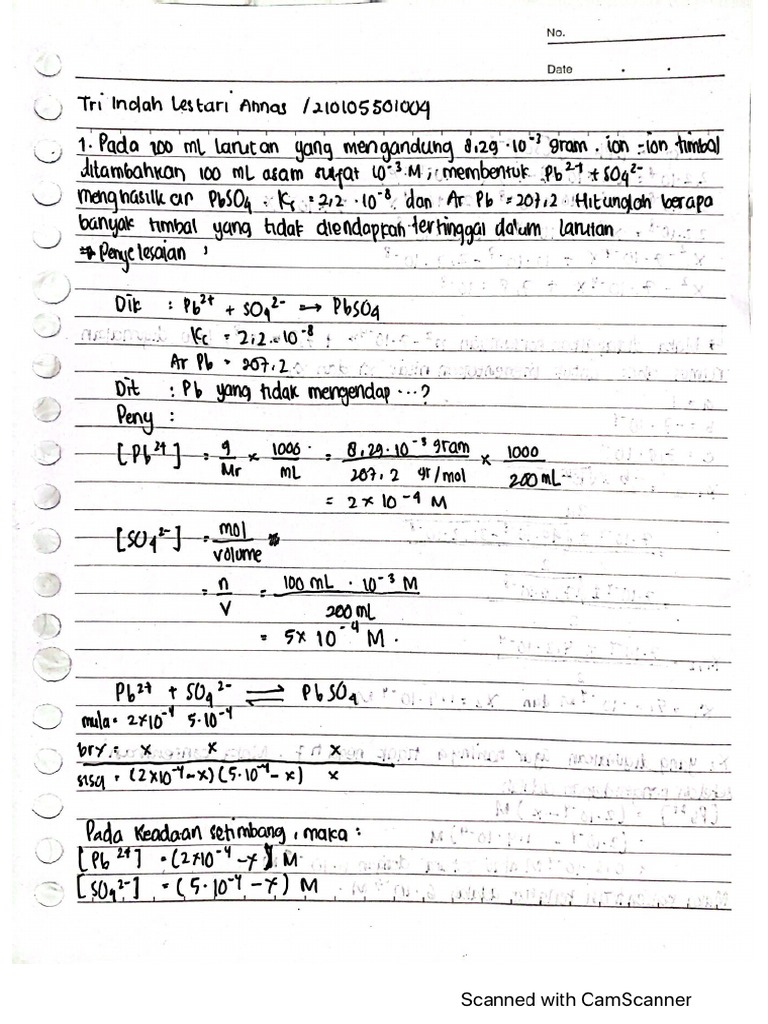 No.
Date
Tri Indah Lestari Annas / 210105501004
1. Pada 100 ml larutan yang mengandung 8,29 · 10⁻³ gram. ion-ion timbal
ditambahkan 100 ml asam sulfat 10⁻³ M; membentuk Pb²⁺ + SO₄²⁻
menghasilkan PbSO₄. Ks = 2,2 · 10⁻⁸ dan Ar Pb = 207,2. Hitunglah berapa
banyak timbal yang tidak diendapkan tertinggal dalam larutan
⇒ Penyelesaian :
Dik : Pb²⁺ + SO₄²⁻ → PbSO₄
Kc = 2,2 · 10⁻⁸
Ar Pb = 207,2
Dit : Pb yang tidak mengendap ...?
Peny :
[Pb²⁺] = g/Mr × 1000/mL = 8,29 · 10⁻³ gram/207,2 gr/mol × 1000/200 mL
= 2 × 10⁻⁴ M
[SO₄²⁻] = mol/volume
= n/V = 100 mL · 10⁻³ M/200 mL
= 5 × 10⁻⁴ M.
Pb²⁺ + SO₄²⁻ ⇌ PbSO₄
mula = 2×10⁻⁴ 5·10⁻⁴
brx = x x x
sisa = (2×10⁻⁴-x) (5·10⁻⁴-x) x
Pada Keadaan setimbang, maka :
[Pb²⁺] = (2×10⁻⁴ -x) M
[SO₄²⁻] = (5·10⁻⁴ -x) M
Scanned with CamScanner